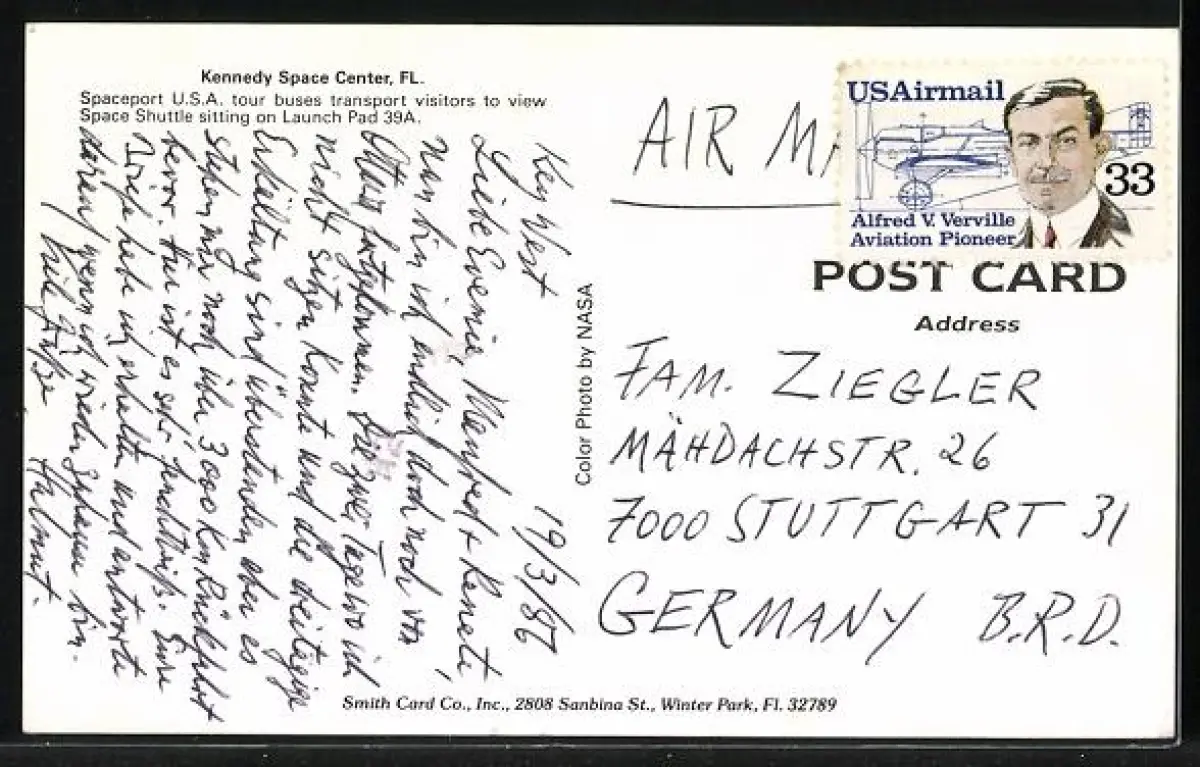 Kennedy Space Center, FL.
Spaceport U.S.A. tour buses transport visitors to view
Space Shuttle sitting on Launch Pad 39A.
Key West 19/3/87
Liebe Evemie, Manfred + Renate,
nun bin ich endlich doch noch von
Ottawa fortgekommen. Die zwei Tage wo ich
nicht sitzen konnte und die dreitägige
Erkältung sind überstanden aber es
stehen mir noch über 3000 Km Rückfahrt
bevor. Hier ist es sehr feuchtheiß. Eure
Briefe habe ich erhalten und antworte
darauf wenn ich wieder zuhause bin.
Viele Grüße Helmut.
Color Photo by NASA
AIR
USAirmail
33
Alfred V. Verville
Aviation Pioneer
POST CARD
Address
FAM. ZIEGLER
MÄHDACHSTR. 26
7000 STUTTGART 31
GERMANY B.R.D.
Smith Card Co., Inc., 2808 Sanbina St., Winter Park, Fl. 32789